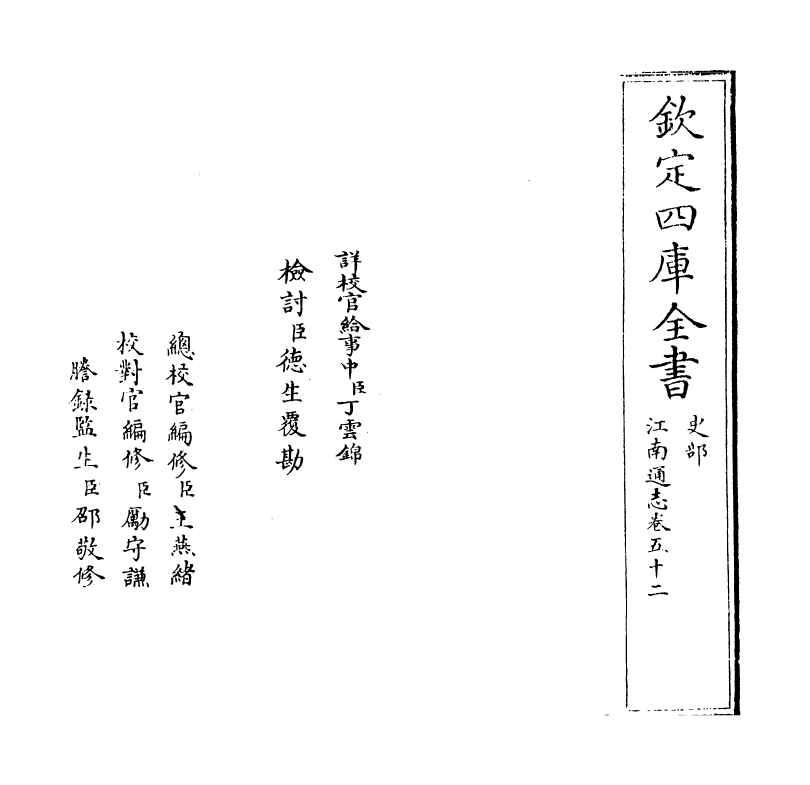 欽定四庫全書
史部
江南通志卷五十二
詳校官給事中臣丁雲錦
檢討臣德生覆勘
總校官編修臣王燕緒
校對官編修臣勵守謙
謄錄監生臣邵敬修